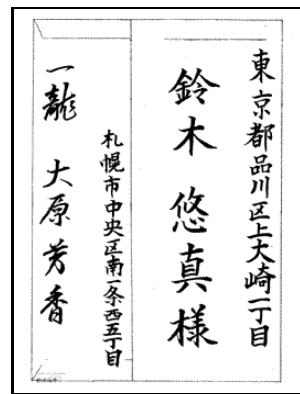 東京都品川区上大崎一丁目
鈴木 悠真様
札幌市中央区南一条西五丁目
一龍 大原芳香